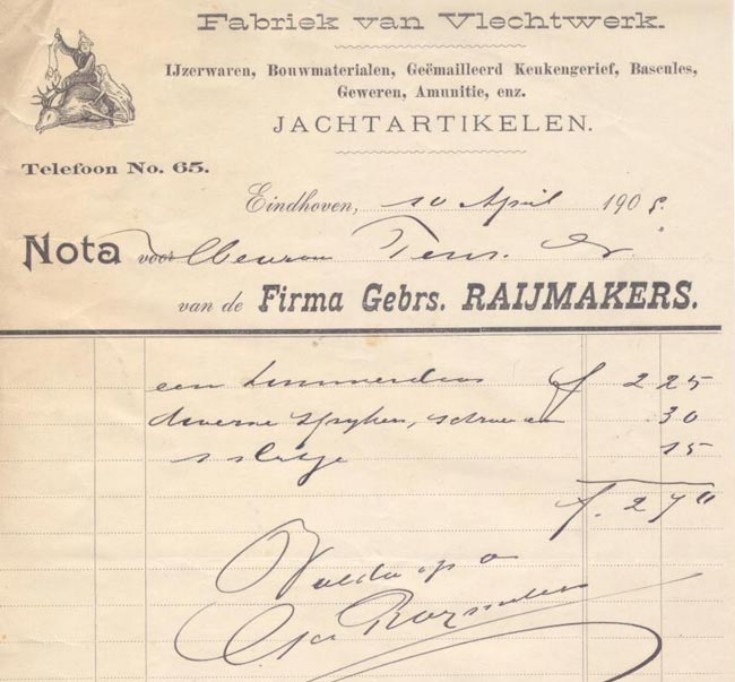 Fabriek van Vlechtwerk.
IJzerwaren, Bouwmaterialen, Geëmailleerd Keukengerief, Bascules,
Geweren, Amunitie, enz.
JACHTARTIKELEN.
Telefoon No. 65.
Eindhoven, 10 April 190
Nota voor Mevrouw
van de Firma Gebrs. RAIJMAKERS.
een f 2 25
diverse spijkers, schroeven 30
1 slotje 15
f. 2 70
Voldaan